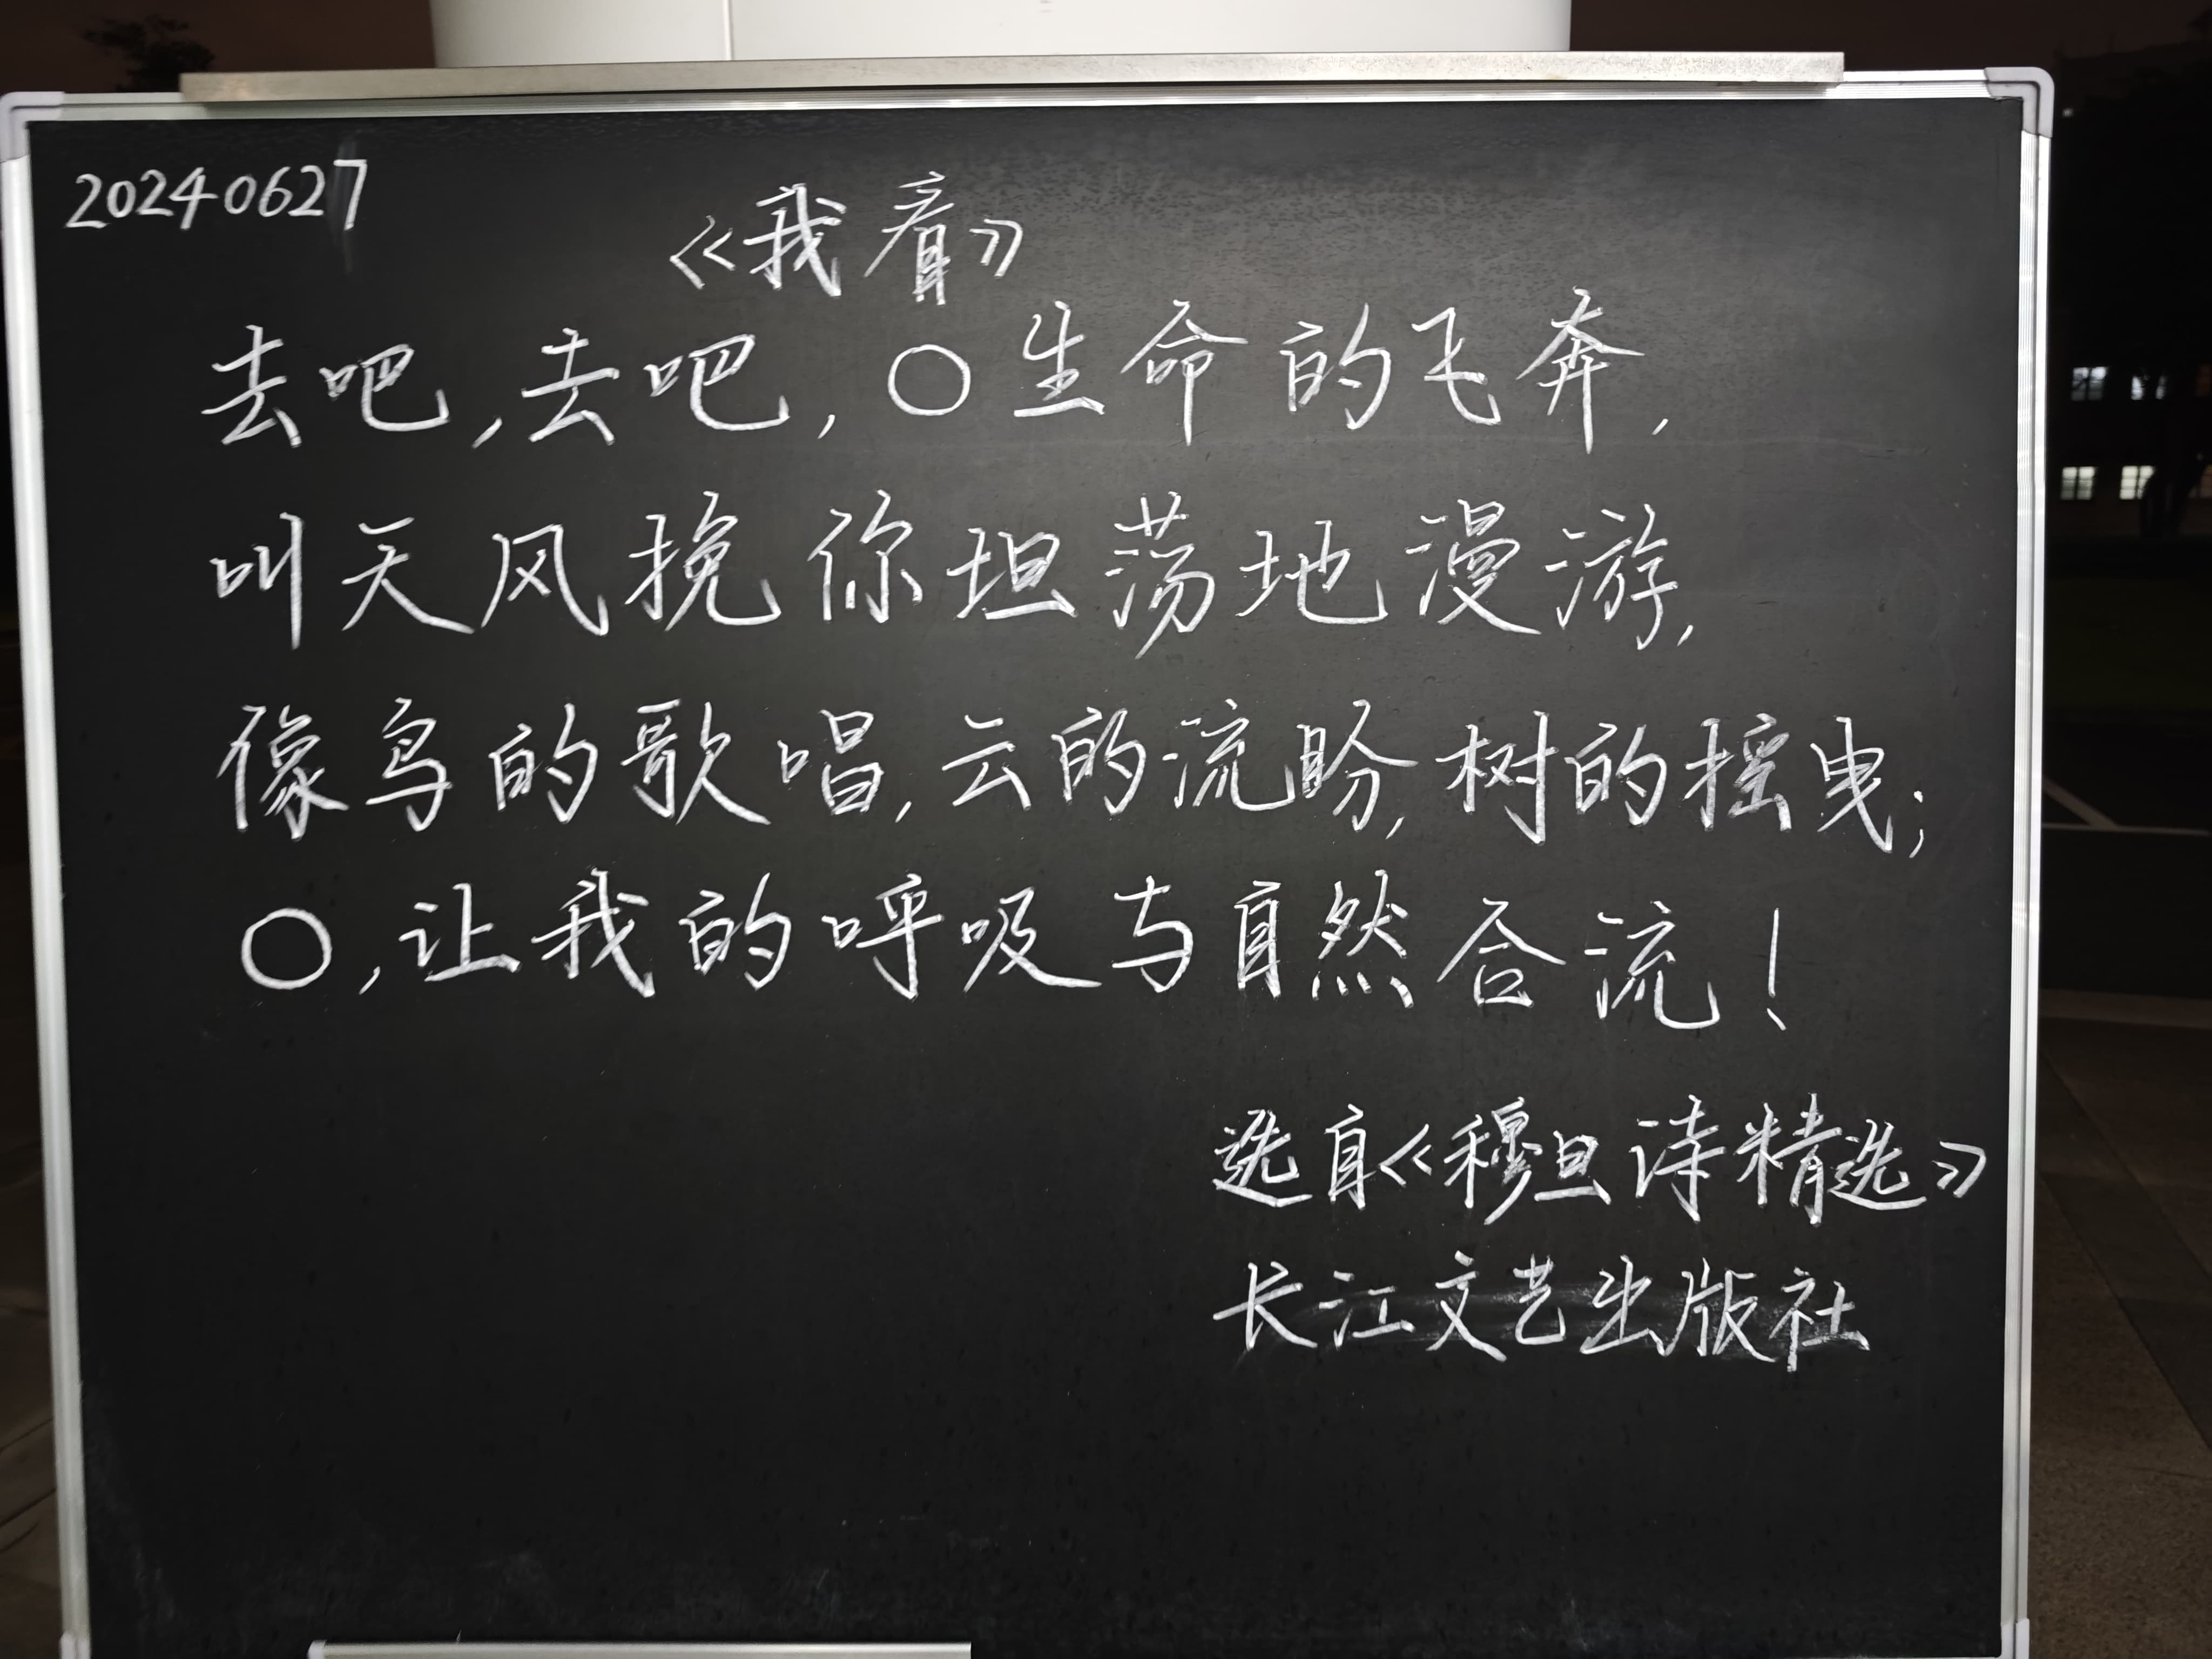 20240627
《我看》
去吧,去吧,○生命的飞奔,
叫天风挽你坦荡地漫游,
像鸟的歌唱,云的流盼,树的摇曳;
○,让我的呼吸与自然合流!
选自《穆旦诗精选》
长江文艺出版社